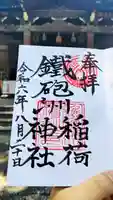 奉拝
鐵砲洲稲荷
神社
令和六年八月二十日